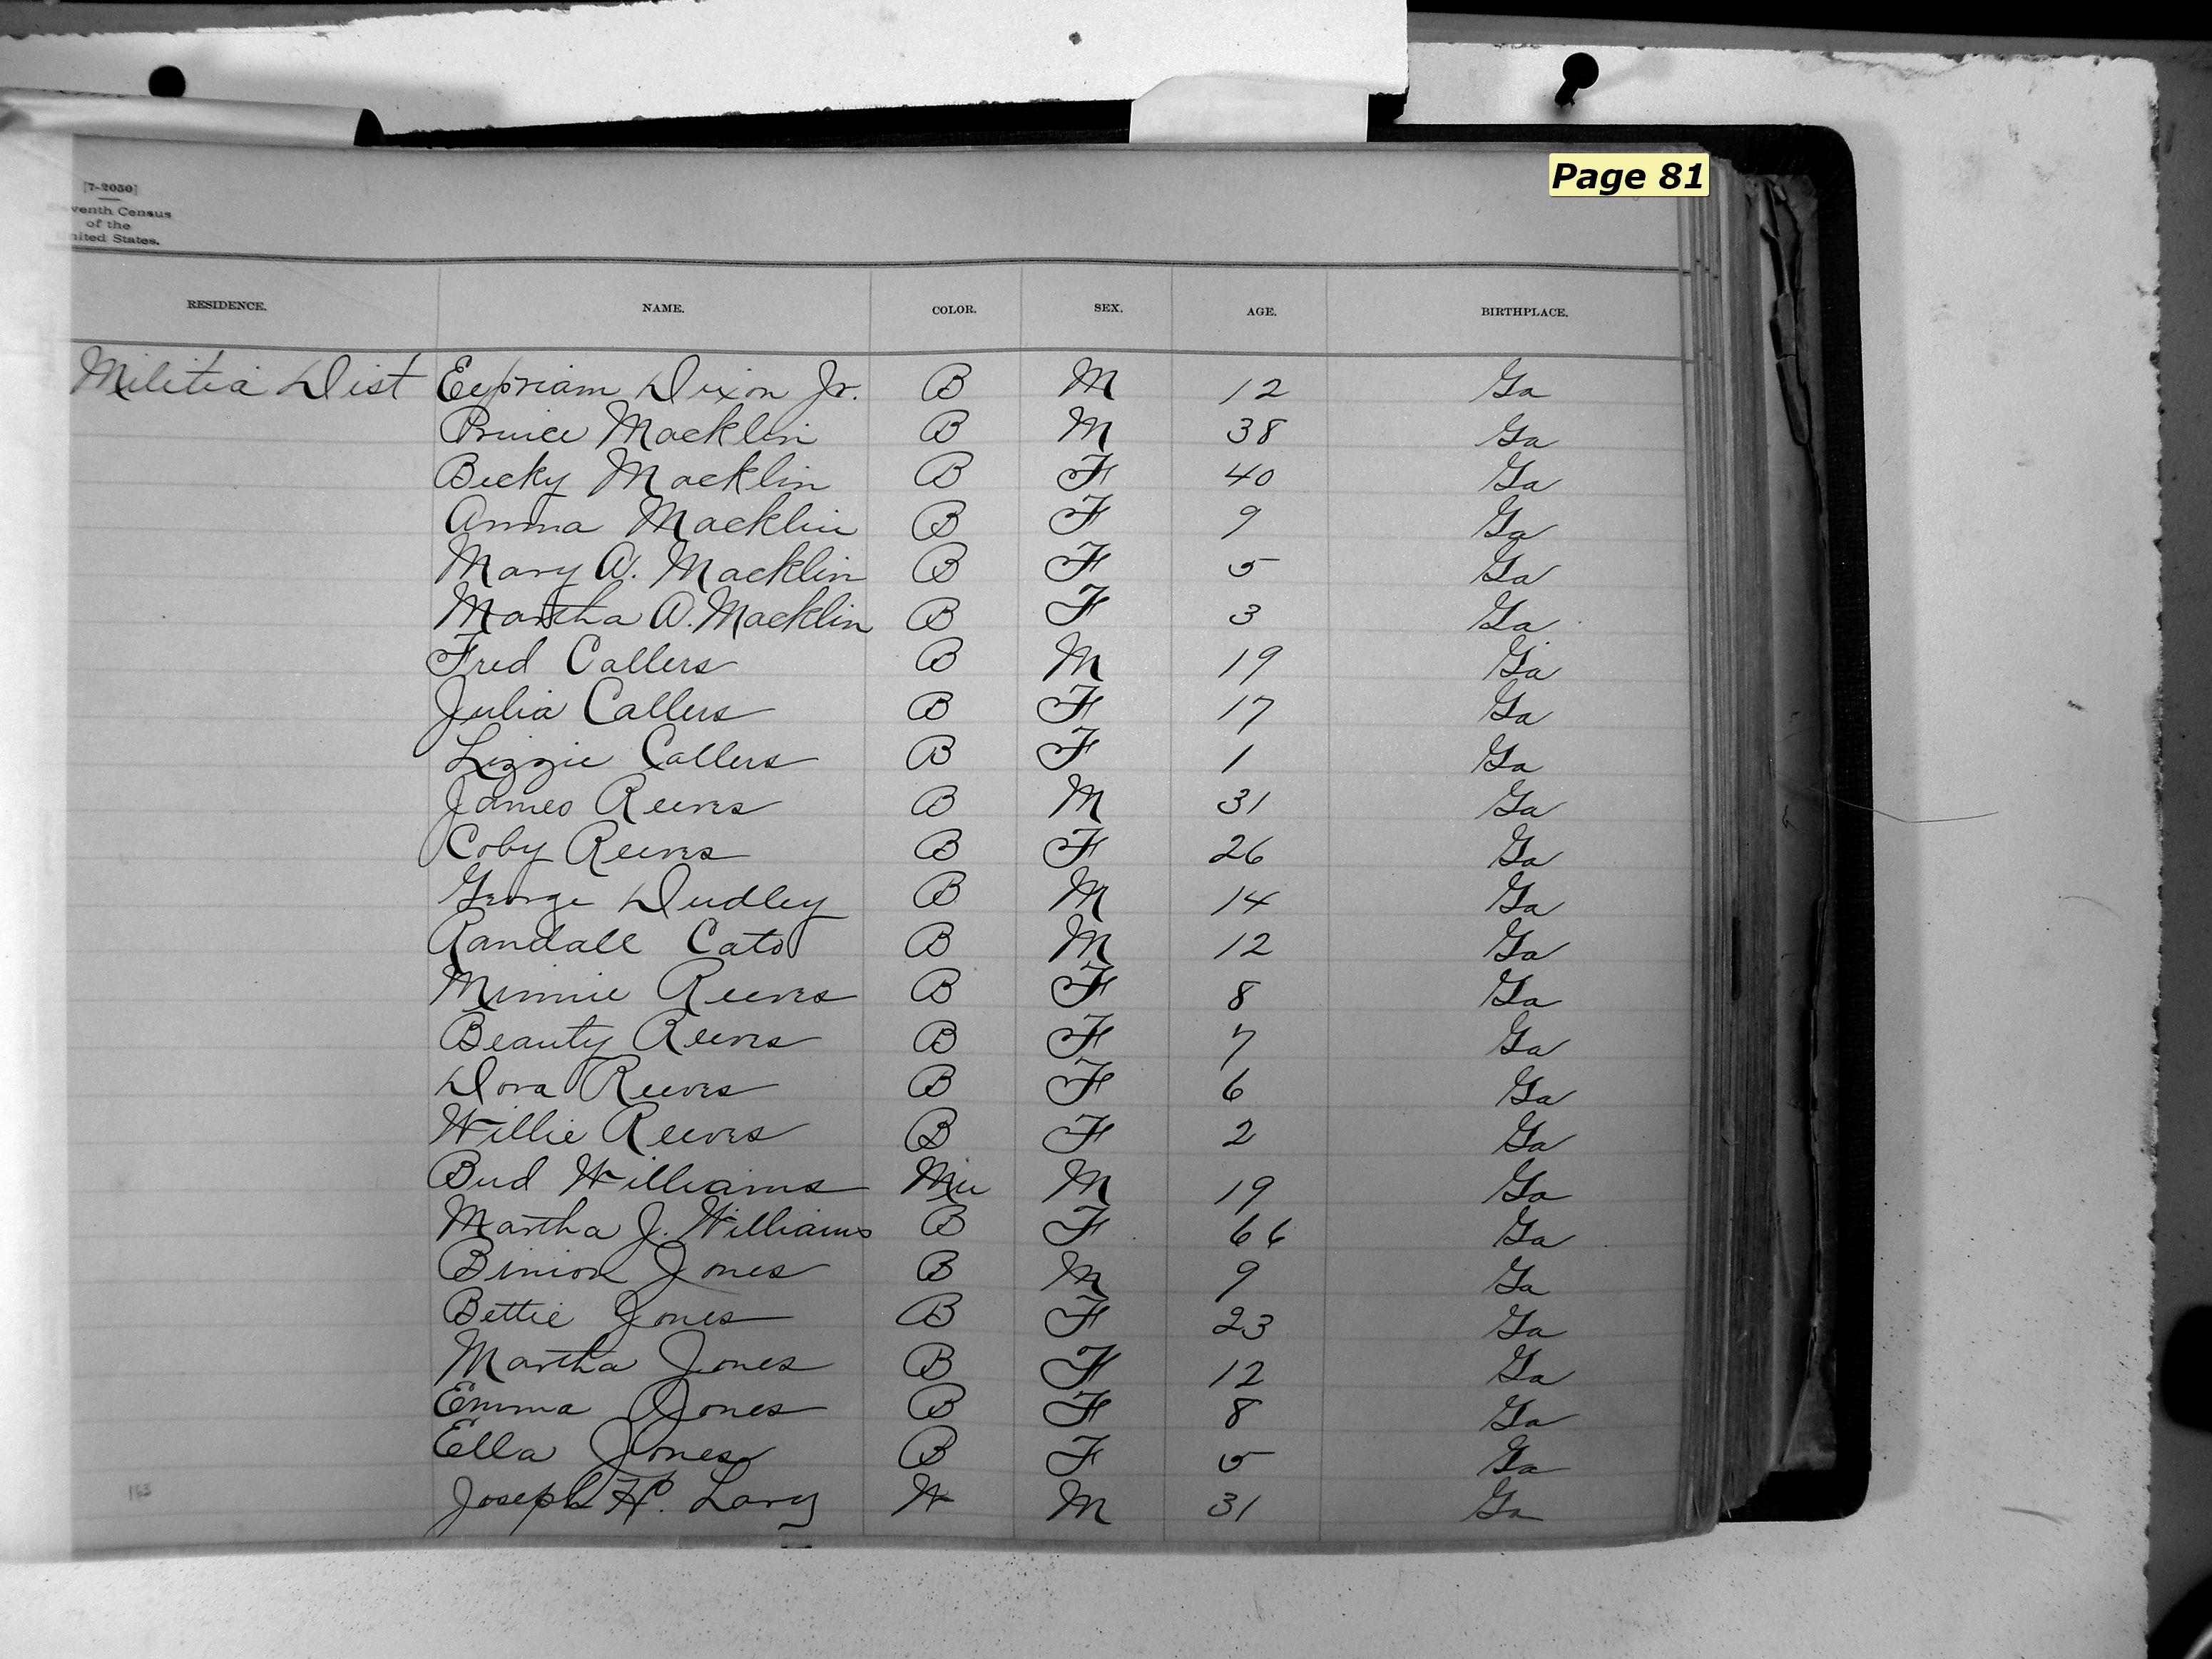 Page 81
[7-2050]
venth Census
of the
nited States.
RESIDENCE. NAME. COLOR. SEX. AGE. BIRTHPLACE.
Militia Dist Eephriam Dixon Jr. B M 12 Ga
Prince Macklin B M 38 Ga
Becky Macklin B F 40 Ga
Anna Macklin B F 9 Ga
Mary A. Macklin B F 5 Ga
Martha A. Macklin B F 3 Ga
Fred Callers B M 19 Ga
Julia Callers B F 17 Ga
Lizzie Callers B F 1 Ga
James Reeves B M 31 Ga
Coby Reeves B F 26 Ga
George Dudley B M 14 Ga
Randall Cato B M 12 Ga
Minnie Reeves B F 8 Ga
Beauty Reeves B F 7 Ga
Dora Reeves B F 6 Ga
Willie Reeves B F 2 Ga
Bud Williams Mu M 19 Ga
Martha J. Williams B F 66 Ga
Binion Jones B M 9 Ga
Bettie Jones B F 23 Ga
Martha Jones B F 12 Ga
Emma Jones B F 8 Ga
Ella Jones B F 5 Ga
Joseph H. Lary W M 31 Ga